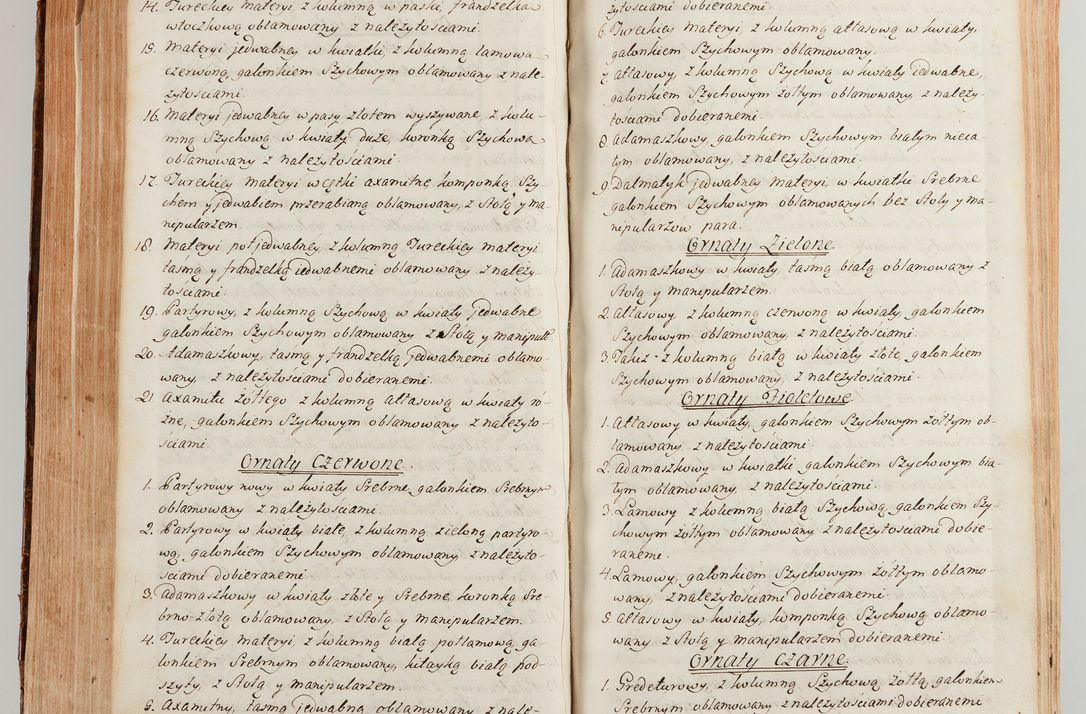 14. Tureckiey materyi z kolumną w paski, frandzelka
włoczkową oblamowany z należytościami.
15. Materyi jedwabney w kwiatki, z kolumną lamowa
czerwoną, galonkiem Szychowym oblamowany z nale-
żytościami.
16. Materyi jedwabney w pasy złotem wyszywane, z kolu-
mną Szychową w kwiaty duże, koronką Szychowa
oblamowany z należytościami.
17. Tureckiey materyi w cętki axamitne komponką Szy-
chem y jedwabiem przerabianą oblamowany, z Stołą y ma-
nipularzem.
18. Materyi połjedwabney z kolumną Tureckiey materyi
taśmą y frandzelką jedwabnemi oblamowany z należy-
tościami.
19. Partyrowy, z kolumną Szychową w kwiaty jedwabne
galonkiem Szychowym oblamowany z Stołą y manipułł
20. Adamaszkowy, taśmą y frandzelką jedwabnemi oblamo-
wany, z należytościami dobieranemi.
21 Axamitu żółtego z kolumną atłasową w kwiaty ró-
żne, galonkiem Szychowym oblamowany z należyto-
ściami
Ornaty Czerwone.
1. Partyrowy nowy w kwiaty Srebrne galonkiem Srebrnym
oblamowany z należytościami.
2. Partyrowy w kwiaty białe, z kolumną zieloną partyro-
wą, galonkiem Szychowym oblamowany z należyto-
ściami dobieranemi
3. Adamaszkowy w kwiaty złote y Srebrne, koronką Sre-
brno-złotą oblamowany, z Stołą y manipularzem.
4. Tureckiey materyi z kolumną białą połlamową ga-
lonkiem Srebrnym oblamowany, kitayką białą pod-
szyty, z Stołą y manipularzem.
5. Axamitny, taśmą jedwabną oblamowany z nale-
żytościami dobieranemi.
6. Tureckiey materyi, z kolumną atłasową w kwiaty,
galonkiem Szychowym oblamowany.
7. Atłasowy, z kolumną Szychową w kwiaty jedwabne,
galonkiem Szychowym żołtym oblamowany, z należy-
tościami dobieranemi.
8 Adamaszkowy, galonkiem Szychowym białym nieca-
łym oblamowany, z należytościami.
9. Dalmatyk jedwabney materyi, w kwiatki Srebrne
galonkiem Szychowym oblamowanych bez Stoły y ma-
nipularzow para.
Ornaty Zielone.
1. Adamaszkowy w kwiaty, taśmą białą oblamowany z
Stołą y manipularzem.
2. Atłasowy z kolumną czerwoną w kwiaty, galonkiem
Szychowym oblamowany, z należytościami.
3. Takiż z kolumną białą w kwiaty złote, galonkiem
Szychowym oblamowany, z należytościami.
Ornaty Fioletowe.
1. Atłasowy w kwiaty, galonkiem Szychowym żołtym ob-
lamowany z należytościami.
2. Adamaszkowy w kwiatki galonkiem Szychowym bia-
łym oblamowany, z należytościami.
3. Lamowy z kolumną białą Szychową, galonkiem Szy-
chowym żołtym oblamowany z należytościami dobie-
ranemi.
4. Lamowy, galonkiem Szychowym żołtym oblamo-
wany z należytościami dobieranemi.
5. Atłasowy w kwiaty, komponką Szychową oblamo-
wany z Stołą y manipularzem dobieranemi.
Ornaty Czarne.
1. Gredeturowy, z kolumną Szychową żołtą galonkiem
Srebrnym oblamowany z należytościami dobieranemi